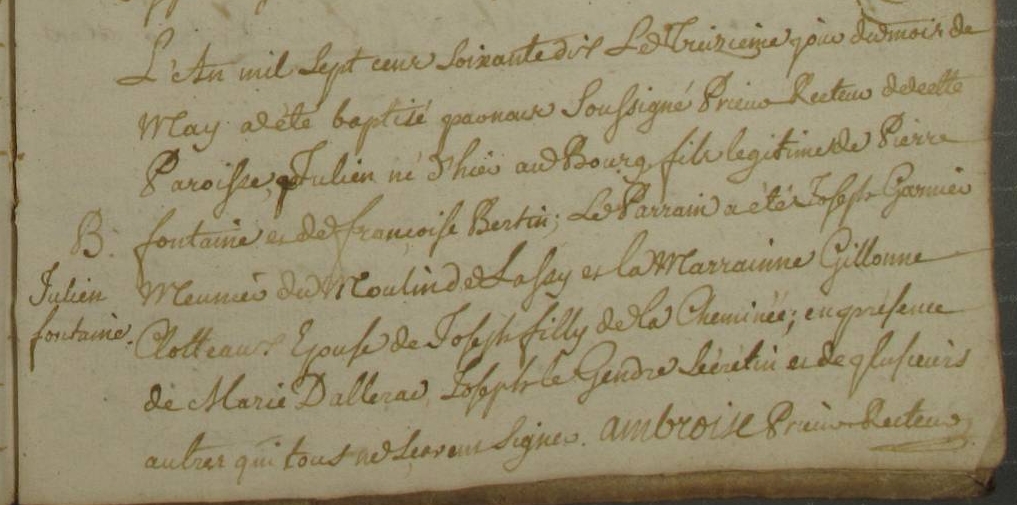 L'An mil sept cent soixante dix Le Treizieme jour du mois de
May a eté baptisé par nous soussigné Prieur Recteur de cette
Paroisse, Julien né d'hier au Bourg fils legitime de Pierre
B. fontaine et de françoise Bertin; Le Parrain a eté Joseph Garnier
Julien Meunier du Moulin de Lassy et la Marrainne Gillonne
fontaine. Clotteaux Epouse de Joseph filly de la Cheminée; en présence
de Marie Dallerac, Joseph le Gendre et de plusieurs
autres qui tous ne scavent signer. ambroise Prieur Recteur